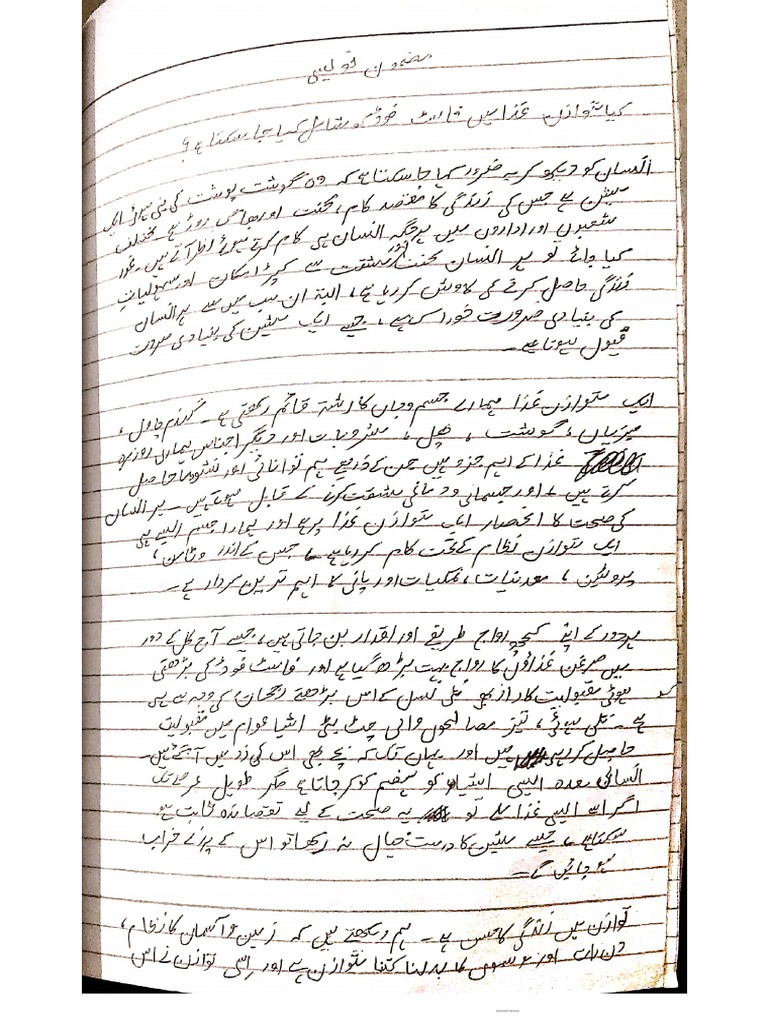 مضمون نویسی
کیا متوازن غذا میں فاسٹ فوڈ کو شامل کیا جا سکتا ہے؟
انسان کو دیکھ کر یہ ضرور کہا جا سکتا ہے کہ وہ گوشت پوشت کی بنی ہوئی ایک
مشین ہے جس کی زندگی کا مقصد کام، محنت اور بھاگ دوڑ ہے مختلف
شعبوں اور اداروں میں ہر جگہ انسان ہی کام کرتے ہوئے نظر آتے ہیں۔ غور
کیا جائے تو ہر انسان محنت اور مشقت سے کپڑا مکان اور سہولیاتِ
زندگی حاصل کرنے کی کاوش کر رہا ہے، البتہ ان سب میں سے ہر انسان
کی بنیادی ضرورت خوراک ہے، جیسے ایک مشین کی بنیادی ضرورت
فیول ہوتا ہے۔
ایک متوازن غذا ہمارے جسم و جاں کا رشتہ قائم رکھتی ہے۔ گندم چاول،
سبزیاں، گوشت، پھل، مشروبات اور دیگر اجناس ہماری روزمرہ
غذا کے اہم جزو ہیں جن کے ذریعے ہم توانائی اور نشوونما حاصل
کرتے ہیں اور جسمانی و دماغی مشقت کرنے کے قابل ہوتے ہیں۔ ہر انسان
کی صحت کا انحصار ایک متوازن غذا پر ہے اور ہمارا جسم ایسے ہی
ایک متوازن نظام کے تحت کام کر رہا ہے، جس کے اندر وٹامن،
پروٹین، معدنیات، نمکیات اور پانی کا اہم ترین کردار ہے۔
ہر دور کے اپنے کچھ رواج طریقے اور اقدار بن جاتی ہیں، جیسے آج کل کے دور
میں مرغن غذاؤں کا رواج بہت بڑھ گیا ہے اور فاسٹ فوڈ کی بڑھتی
ہوئی مقبولیت کا راز بھی نئی نسل کے اس بڑھتے رجحان کی وجہ سے ہی
ہے۔ تلی ہوئی، تیز مصالحوں والی چٹ پٹی اشیا عوام میں مقبولیت
حاصل کر رہی ہیں اور یہاں تک کہ بچے بھی اس کی زد میں آ چکے ہیں۔
انسانی معدہ ایسی اشیاء کو ہضم تو کر جاتا ہے مگر طویل عرصے تک
اگر اسے ایسی غذا ملے تو یہ صحت کے لیے نقصان دہ ثابت ہو
سکتا ہے، جیسے مشین کا درست خیال نہ رکھا تو اس کے پرزے خراب
ہو جائیں گے۔
توازن میں زندگی کا حسن ہے۔ ہم دیکھتے ہیں کہ زمین و آسمان کا نظام،
دن رات اور موسموں کا بدلنا کتنا متوازن ہے اور اسی توازن نے اس